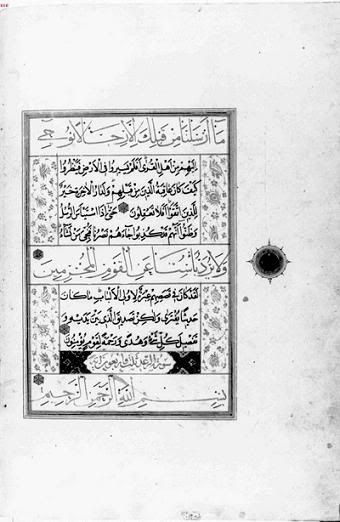 ما أرسلنا من قبلك إلا رجالا نوحي
إليهم من أهل القرى أفلم يسيروا في الأرض فينظروا
كيف كان عاقبة الذين من قبلهم ولدار الآخرة خير
للذين اتقوا أفلا تعقلون حتى إذا استيأس الرسل
وظنوا أنهم قد كذبوا جاءهم نصرنا فنجي من نشاء
ولا يرد بأسنا عن القوم المجرمين
لقد كان في قصصهم عبرة لأولي الألباب ما كان
حديثا يفترى ولكن تصديق الذي بين يديه و
تفصيل كل شيء وهدى ورحمة لقوم يؤمنون
سورة الرعد واربعون آية
بسم الله الرحمن الرحيم